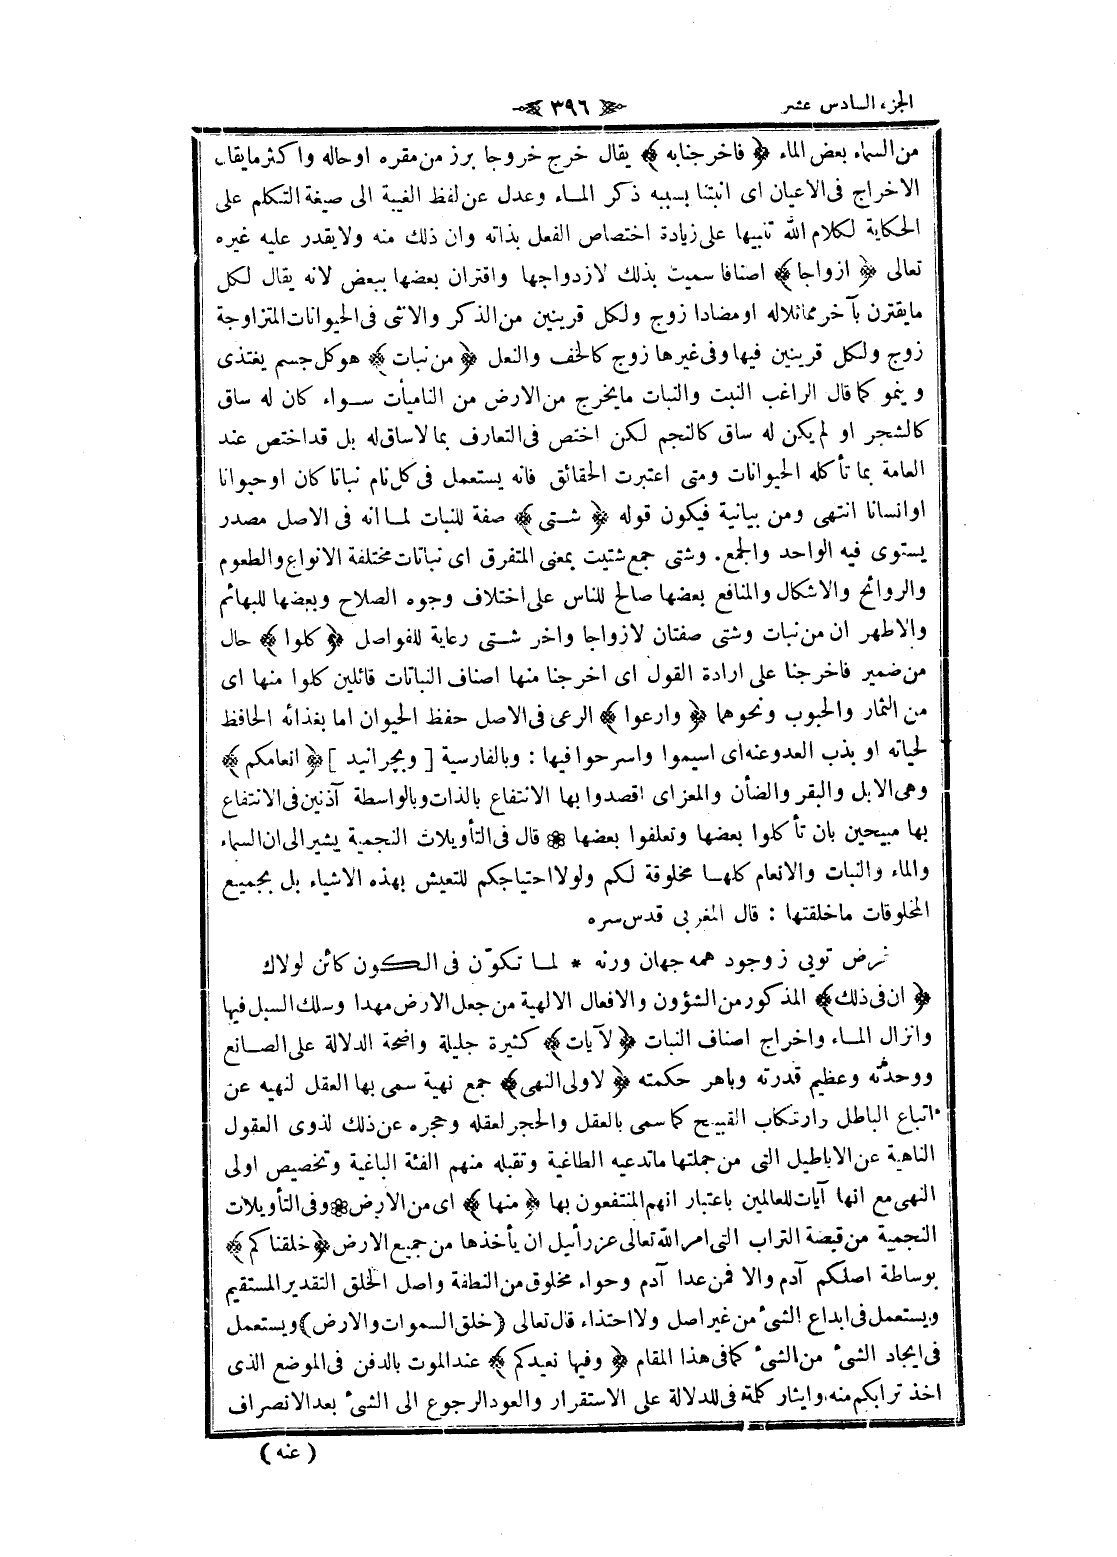 الجزء السادس عشر
٣٩٦
من السماء بعض الماء ﴿ فاخرجنابه ﴾ يقال خرج خروجا برز من مقره او حاله واكثر مايقال
الاخراج فى الاعيان اى انبتنا بسببه ذكر المـاء وعدل عن لفظ الغيبة الى صيغة التكلم على
الحكاية لكلام الله تنبيها على زيادة اختصاص الفعل بذاته وان ذلك منه ولايقدر عليه غيره
تعالى ﴿ ازواجا ﴾ اصنافا سميت بذلك لازدواجها واقتران بعضها ببعض لانه يقال لكل
مايقترن بآخر مماثلاله او مضادا زوج ولكل قرينين من الذكر والانثى فى الحيوانات المتزاوجة
زوج ولكل قرينين فيها وفى غيرها زوج كالخف والنعل ﴿ من نبات ﴾ هو كل جسم يغتذى
وينمو كما قال الراغب النبت والنبات مايخرج من الارض من الناميات سـواء كان له ساق
كالشجر او لم يكن له ساق كالنجم لكن اختص فى التعارف بما لاساق له بل قداختص عند
العامة بما تأكله الحيوانات ومتى اعتبرت الحقائق فانه يستعمل فى كل نام نباتا كان او حيوانا
او انسانا انتهى ومن بيانية فيكون قوله ﴿ شـتى ﴾ صفة للنبات لمـا انه فى الاصل مصدر
يستوى فيه الواحد والجمع. وشتى جمع شتيت بمعنى المتفرق اى نباتات مختلفة الانواع والطعوم
والروائح والاشكال والمنافع بعضها صالح للناس على اختلاف وجوه الصلاح وبعضها للبهائم
والاظهر ان من نبات وشتى صفتان لازواجا واخر شـتى رعاية للفواصل ﴿ كلوا ﴾ حال
من ضمير فاخرجنا على ارادة القول اى اخرجنا منها اصناف النباتات قائلين كلوا منها اى
من الثمار والحبوب ونحوهما ﴿ وارعوا ﴾ الرعى فى الاصل حفظ الحيوان اما بغذائه الحافظ
لحياته او بذب العدو عنه اى اسيموا واسرحوا فيها : وبالفارسية [ وبچرانيد ] ﴿ انعامكم ﴾
وهى الابل والبقر والضأن والمعز اى اقصدوا بها الانتفاع بالذات وبالواسطة آذنين فى الانتفاع
بها مبيحين بان تأكلوا بعضها وتعلفوا بعضها ❁ قال فى التأويلات النجمية يشير الى ان السماء
والماء والنبات والانعام كلهـا مخلوقة لكم ولولا احتياجكم للتعيش بهذه الاشياء بل بجميـع
المخلوقات ماخلقتها : قال المغربى قدس سره
غرض توىى ز وجود همه جهان ورنه * لمـا تكوّن فى الكـون كائن لولاك
﴿ ان فى ذلك ﴾ المذكور من الشؤون والافعال الالهية من جعل الارض مهدا وسلك السبل فيها
وانزال المـاء واخراج اصناف النبات ﴿ لآيات ﴾ كثيرة جليلة واضحة الدلالة على الصـانع
ووحدته وعظيم قدرته وباهر حكمته ﴿ لاولى النهى ﴾ جمع نهية سمى بها العقل لنهيه عن
اتباع الباطل وارتكاب القبيح كما سمى بالعقل والحجر لعقله وحجره عن ذلك لذوى العقول
الناهية عن الاباطيل التى من جملتها ماتدعيه الطاغية وتقبله منهم الفئة الباغية وتخصيص اولى
النهى مع انها آيات للعالمين باعتبار انهم المنتفعون بها ﴿ منها ﴾ اى من الارض ❁ وفى التأويلات
النجمية من قبضة التراب التى امر الله تعالى عزرائيل ان يأخذها من جميع الارض ﴿ خلقناكم ﴾
بوساطة اصلكم آدم والا فمن عدا آدم وحواء مخلوق من النطفة واصل الخلق التقدير المستقيم
ويستعمل فى ابداع الشىء من غير اصل ولا احتذاء قال تعالى (خلق السموات والارض) ويستعمل
فى ايجاد الشىء من الشىء كما فى هذا المقام ﴿ وفيها نعيدكم ﴾ عند الموت بالدفن فى الموضع الذى
اخذ ترابكم منه وايثار كلمة فى للدلالة على الاستقرار والعود الرجوع الى الشىء بعد الانصراف
( عنه )